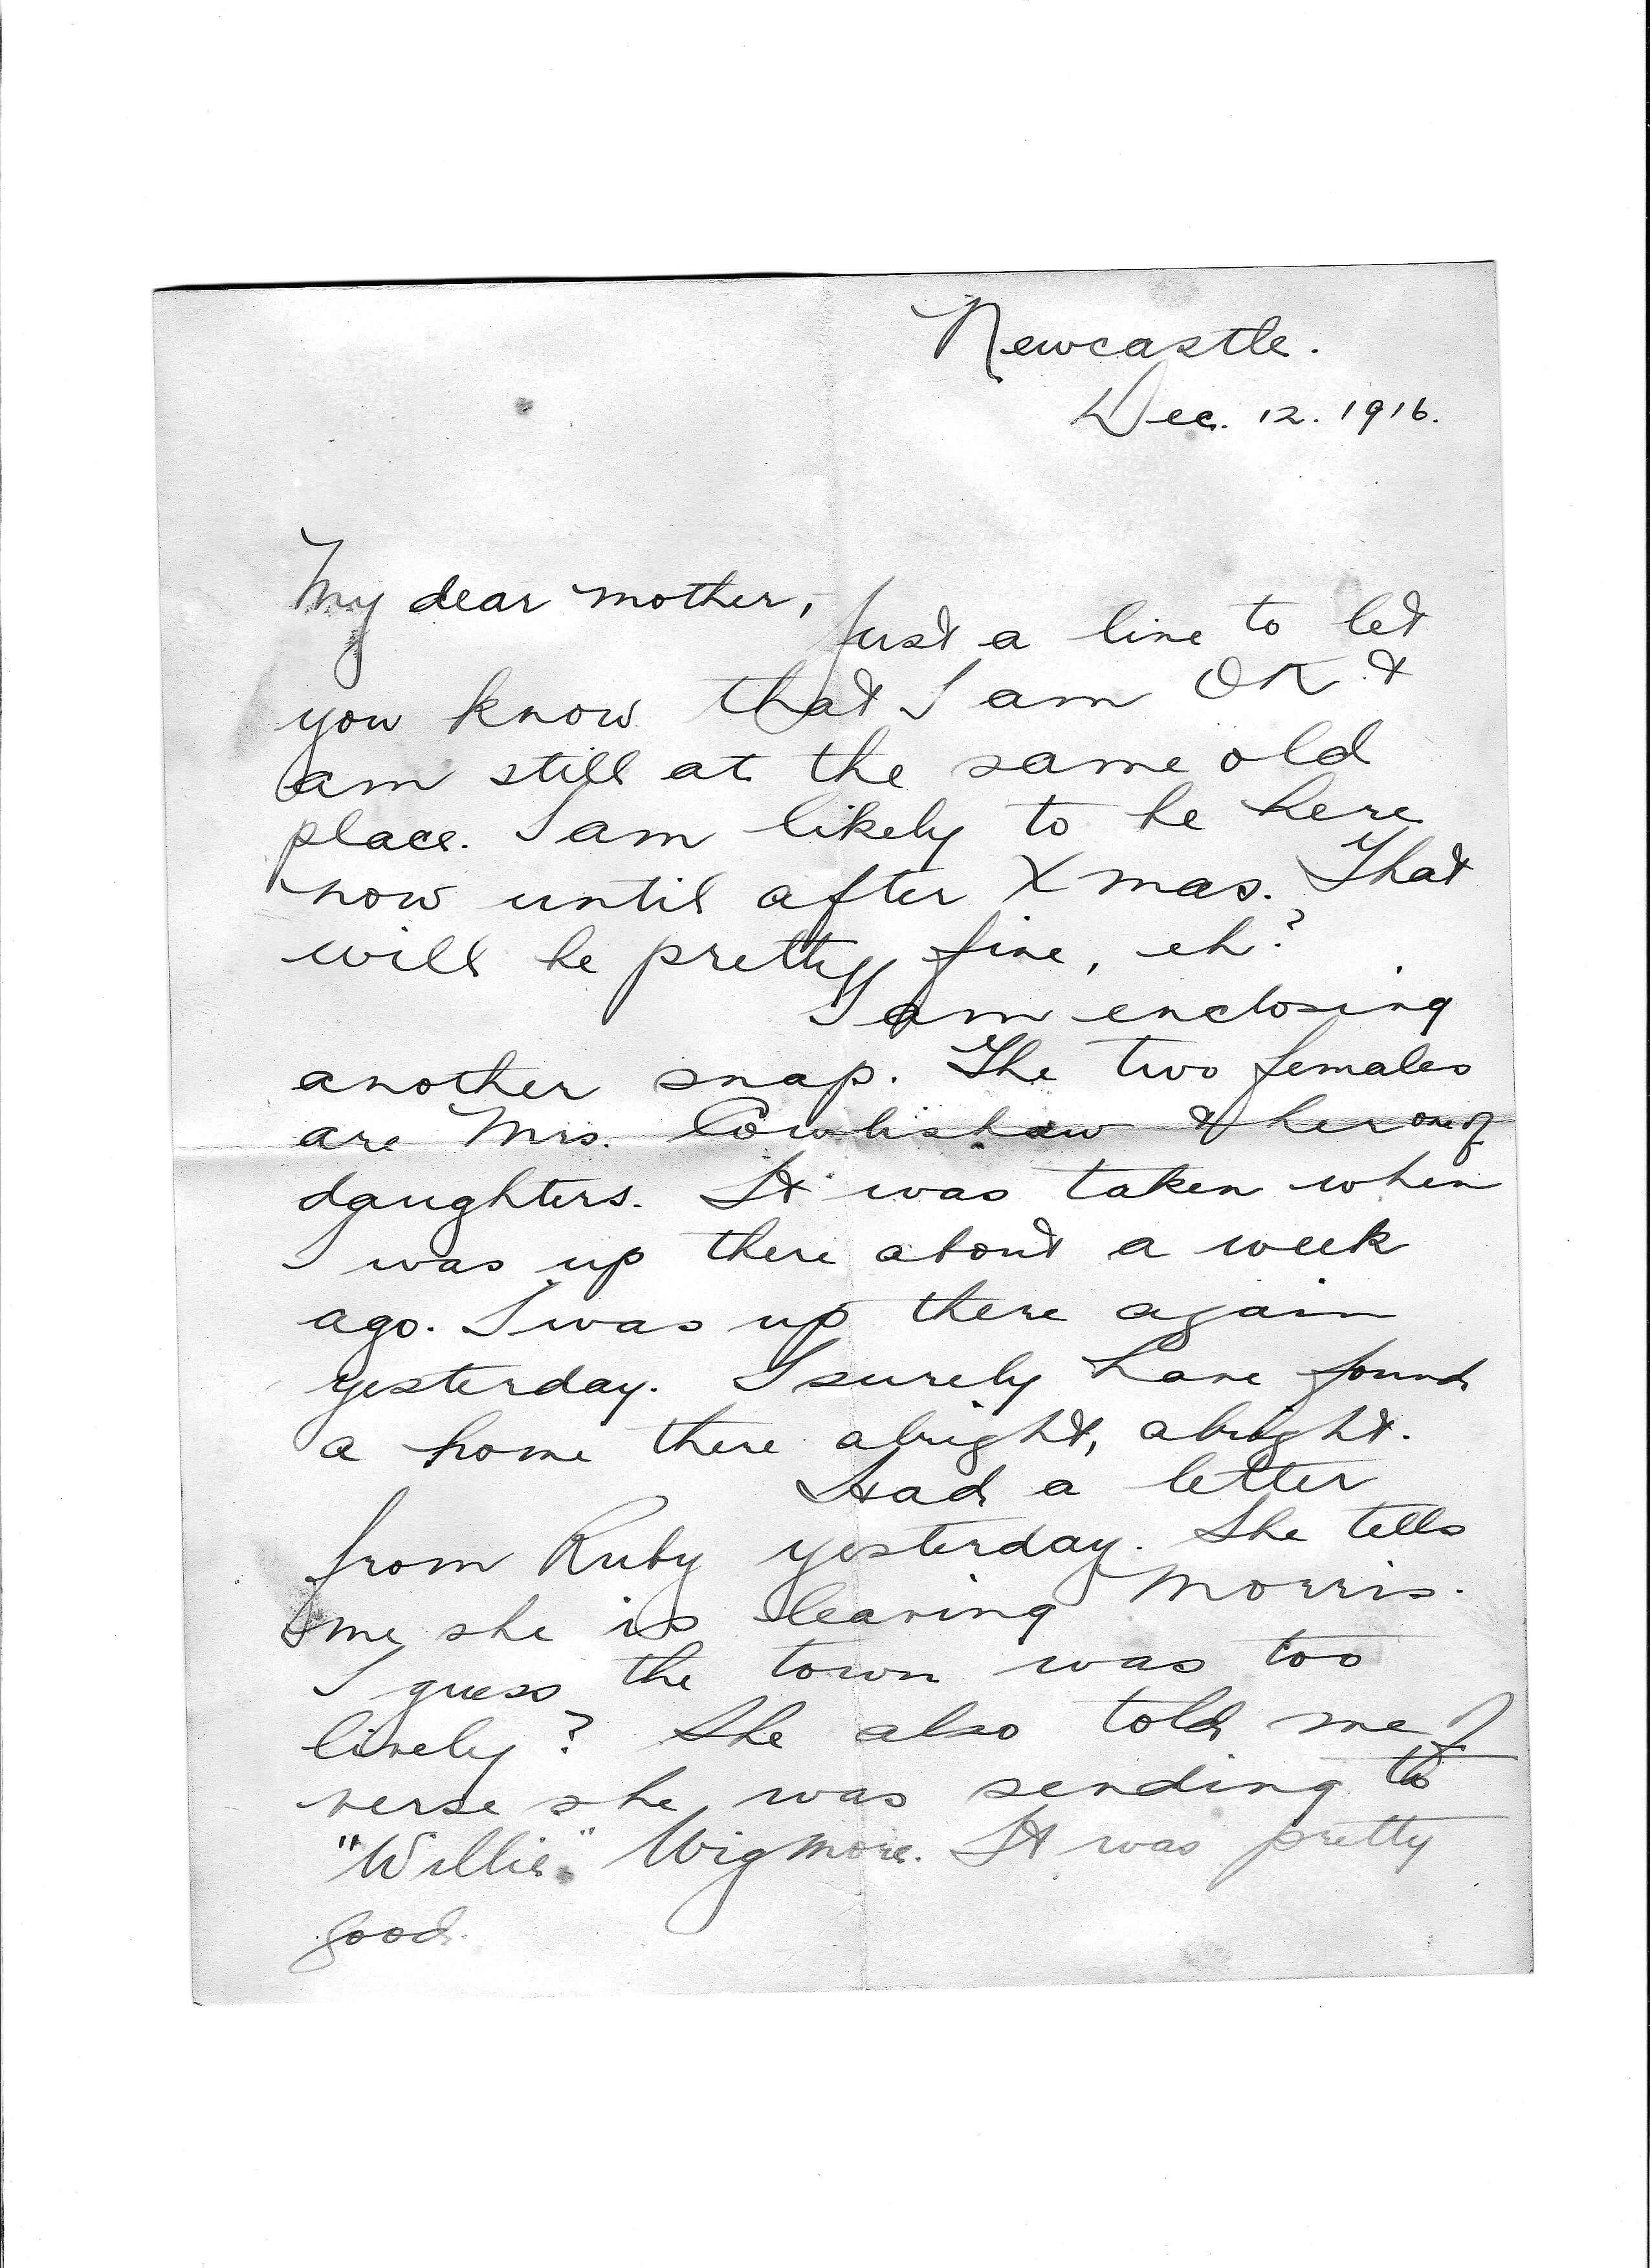 Newcastle.
Dec. 12. 1916.
My dear mother,
Just a line to let
you know that I am OK &
am still at the same old
place. I am likely to be here
now until after Xmas. That
will be pretty fine, eh?
I am enclosing
another snap. The two females
are Mrs. Cowlishaw & her one of
daughters. It was taken when
I was up there about a week
ago. I was up there again
yesterday. I surely have found
a home there alright, alright.
Had a letter
from Ruby yesterday. She tells
me she is leaving Morris.
I guess the town was too
lively? She also told me of
verse she was sending to
"Willie" Wigmore. It was pretty
good.